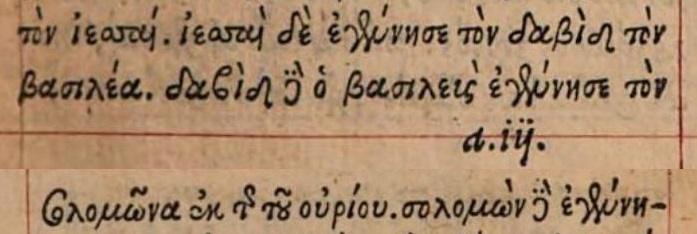 τὸν ἰεσσαί. ἰεσσαὶ δὲ ἐγέννησε τὸν δαβὶδ τὸν
βασιλέα. δαβὶδ δὲ ὁ βασιλεὺς ἐγέννησε τὸν
a.iij.
σολομῶνα ἐκ τῆς τοῦ οὐρίου. σολομὼν δὲ ἐγέννη-